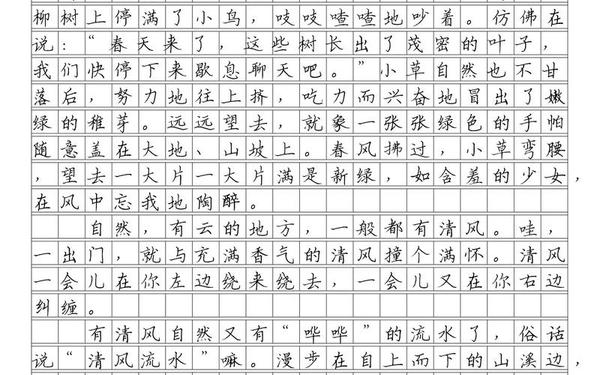 柳树上停满了小鸟，吱吱喳喳地吵着。仿佛在
说：“春天来了，这些树长出了茂密的叶子，
我们快停下来歇息聊天吧。”小草自然也不甘
落后，努力地往上挤，吃力而兴奋地冒出了嫩
绿的稚芽。远远望去，就象一张张绿色的手帕
随意盖在大地、山坡上。春风拂过，小草弯腰
，望去一大片一大片满是新绿，如含羞的少女，
在风中忘我地陶醉。
自然，有云的地方，一般都有清风。哇，
一出门，就与充满香气的清风撞个满怀。清风
一会儿在你左边绕来绕去，一会儿又在你右边
纠缠。
有清风自然又有“哗哗”的流水了，俗话
说“清风流水”嘛。漫步在自上而下的山溪边，